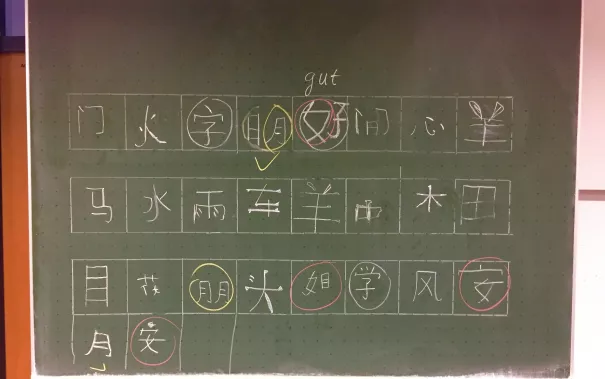 gut
门 火 字 明 好 间 心 羊
马 水 雨 车 羊 雨 木 田
目 花 朋 头 姐 学 风 安
月 安